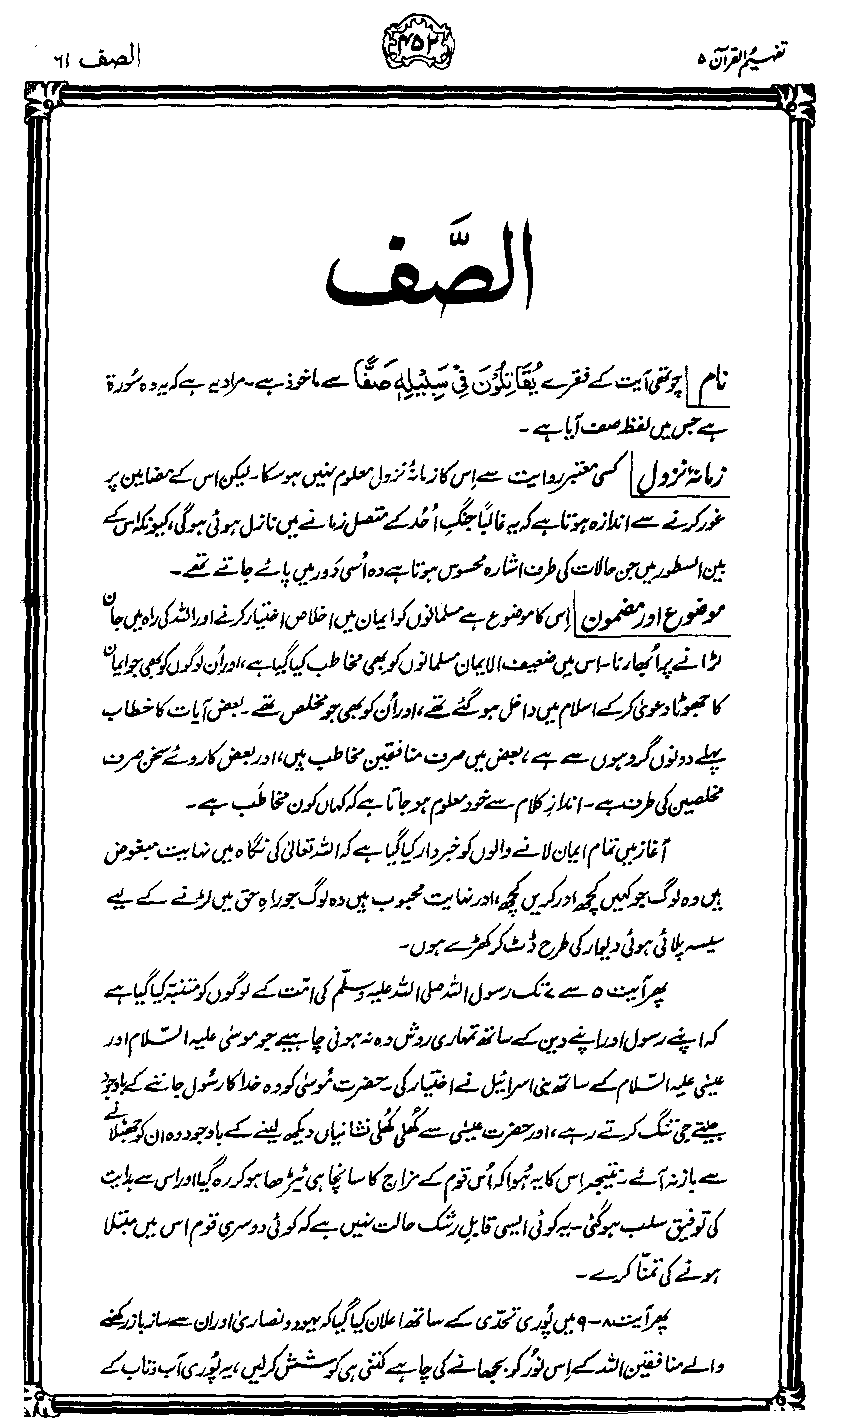 تفہیم القرآن ۵
۴۵۲
الصف ۶۱
الصَّف
نام چوتھی آیت کے فقرے یُقَاتِلُوْنَ فِیْ سَبِیْلِہٖ صَفًّا سے ماخوذ ہے۔ مراد یہ ہے کہ یہ وہ سُورۃ
ہے جس میں لفظ صف آیا ہے۔
زمانۂ نزول کسی معتبر روایت سے اِس کا زمانۂ نزول معلوم نہیں ہو سکا۔ لیکن اس کے مضامین پر
غور کرنے سے اندازہ ہوتا ہے کہ یہ غالباً جنگِ اُحُد کے متصل زمانے میں نازل ہوئی ہوگی، کیونکہ اس کے
بین السطور میں جن حالات کی طرف اشارہ محسوس ہوتا ہے وہ اُسی دَور میں پائے جاتے تھے۔
موضوع اور مضمون اِس کا موضوع ہے مسلمانوں کو ایمان میں اخلاص اختیار کرنے اور اللہ کی راہ میں جان
لڑانے پر اُبھارنا۔ اس میں ضعیف الایمان مسلمانوں کو بھی مخاطب کیا گیا ہے، اور اُن لوگوں کو بھی جو ایمان
کا جھوٹا دعویٰ کر کے اسلام میں داخل ہو گئے تھے، اور اُن کو بھی جو مخلص تھے۔ بعض آیات کا خطاب
پہلے دونوں گروہوں سے ہے، بعض میں صرف منافقین مخاطب ہیں، اور بعض کا روئے سخن صرف
مخلصین کی طرف ہے۔ اندازِ کلام سے خود معلوم ہو جاتا ہے کہ کہاں کون مخاطَب ہے۔
آغاز میں تمام ایمان لانے والوں کو خبردار کیا گیا ہے کہ اللہ تعالیٰ کی نگاہ میں نہایت مبغوض
ہیں وہ لوگ جو کہیں کچھ اور کریں کچھ، اور نہایت محبوب ہیں وہ لوگ جو راہِ حق میں لڑنے کے لیے
سیسہ پلائی ہوئی دیوار کی طرح ڈٹ کر کھڑے ہوں۔
پھر آیت ۵ سے ۷ تک رسول اللہ صلی اللہ علیہ وسلّم کی امّت کے لوگوں کو متنبّہ کیا گیا ہے
کہ اپنے رسول اور اپنے دین کے ساتھ تمہاری روش وہ نہ ہونی چاہیے جو موسٰی علیہ السّلام اور
عیسٰی علیہ السّلام کے ساتھ بنی اسرائیل نے اختیار کی۔ حضرت مُوسٰی کو وہ خدا کا رسُول جاننے کے باوجود
جیتے جی تنگ کرتے رہے، اور حضرت عیسٰی سے کُھلی کُھلی نشانیاں دیکھ لینے کے باوجود وہ ان کو جھٹلانے
سے باز نہ آئے۔ نتیجہ اس کا یہ ہُوا کہ اُس قوم کے مزاج کا سانچا ہی ٹیڑھا ہو کر رہ گیا اور اس سے ہدایت
کی توفیق سلب ہو گئی۔ یہ کوئی ایسی قابلِ رشک حالت نہیں ہے کہ کوئی دوسری قوم اس میں مبتلا
ہونے کی تمنّا کرے۔
پھر آیت ۸-۹ میں پُوری تحدّی کے ساتھ اعلان کیا گیا کہ یہود و نصاریٰ اور ان سے ساز باز رکھنے
والے منافقین اللہ کے اِس نُور کو بجھانے کی چاہے کتنی ہی کوشش کر لیں، یہ پُوری آب و تاب کے